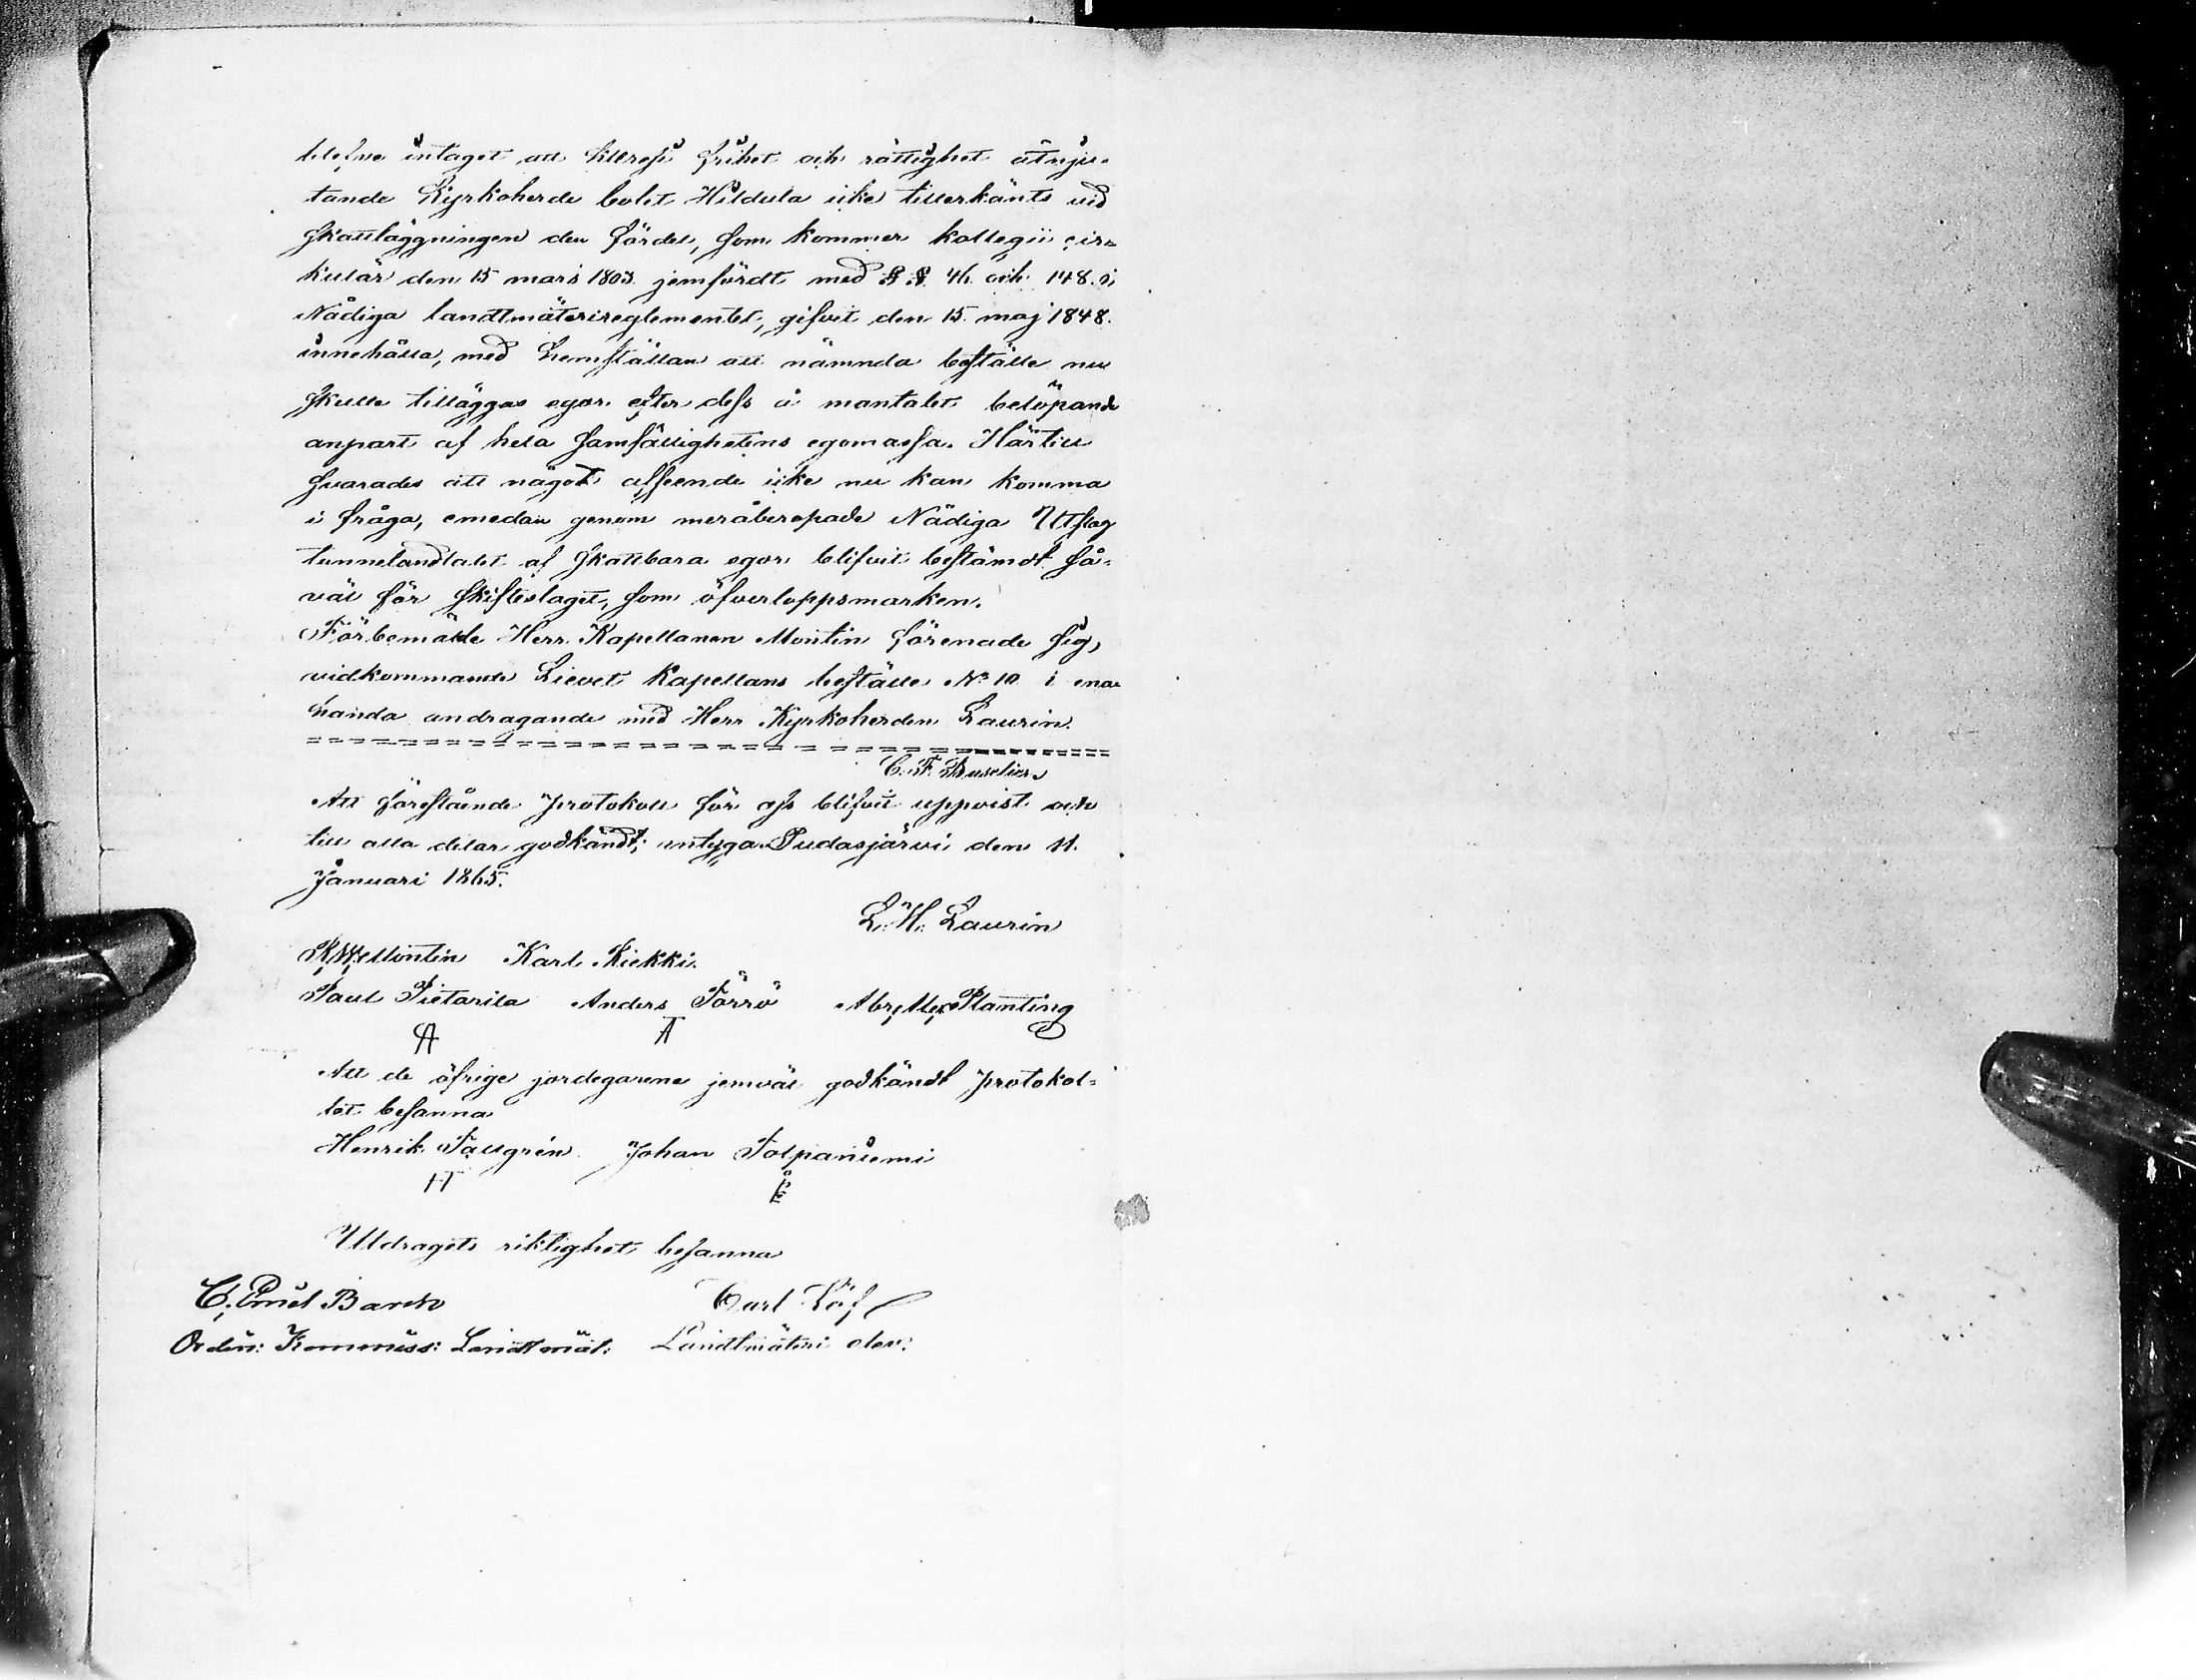 intaget att frihet och rättighet åtnju-
tande Kyrkoherde bolet Hildula icke tillerkänts vid
skattläggningen den fördel, som kommer kollegii cir-
kulär den 15 mars 1803 jemfördt med §§ 46 och 148 i
Nådiga landtmäterireglementet, gifvet den 15 maj 1848.
innehålla, med hemställan att nämnda boställe nu
skulle tilläggas egor efter dess å mantalet belöpande
anpart af hela samfällighetens egomassa. Härtill
svarades att något afseende icke nu kan komma
i fråga, emedan genom meråberopade Nådiga Utslag
tunnelandtalet af skattbara egor blifvit bestämdt så-
väl för skifteslaget, som öfverloppsmarken.
Förbemälde Herr Kapellanen Montin förenade sig,
vidkommande Lievet Kapellans boställe No 10 i ena-
handa andragande med Herr Kyrkoherden Laurin.
C. F.
Att förestående protokoll för oss blifvit uppvist och
till alla delar godkändt; intyga Pudasjärvi den 11.
Januari 1865.
L. H. Laurin
Montin Karl Riekki.
Paul Pietarila Anders Törrö Abr. Alex. Planting
Att de öfrige jordegarene jemväl godkändt protokol-
let besanna
Henrik Tallgrén Johan Tolpaniemi
HT
Utdragets riktighet besanna
C. Emil Barck Carl Löf
Ordin: Kommiss: Landtmät: Landtmäteri elev.